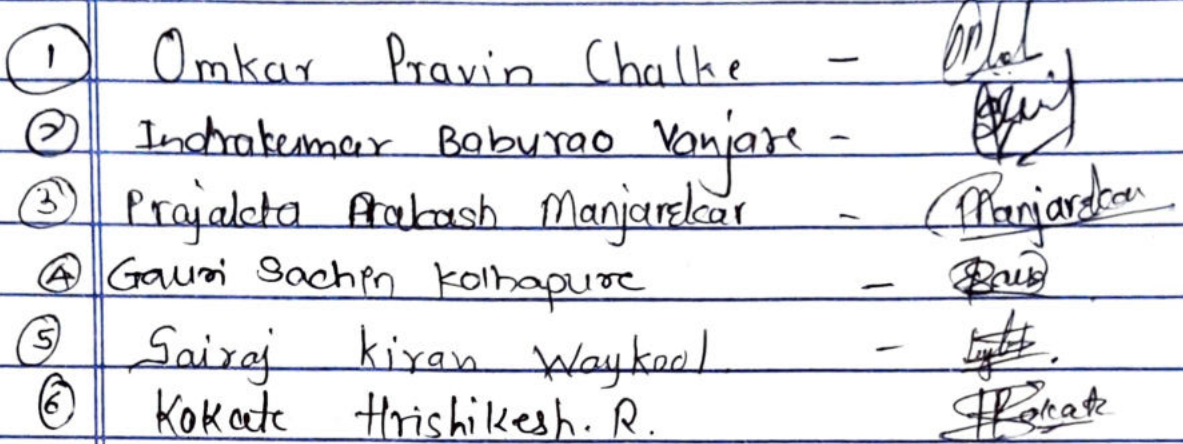 1 Omkar Pravin Chalke -
2 Indrakumar Baburao Vanjare -
3 Prajakta Prakash Manjarekar - Manjarekar
4 Gauri Sachin Kolhapure -
5 Sairaj Kiran Waykool -
6 Kokate Hrishikesh. R. Kokate